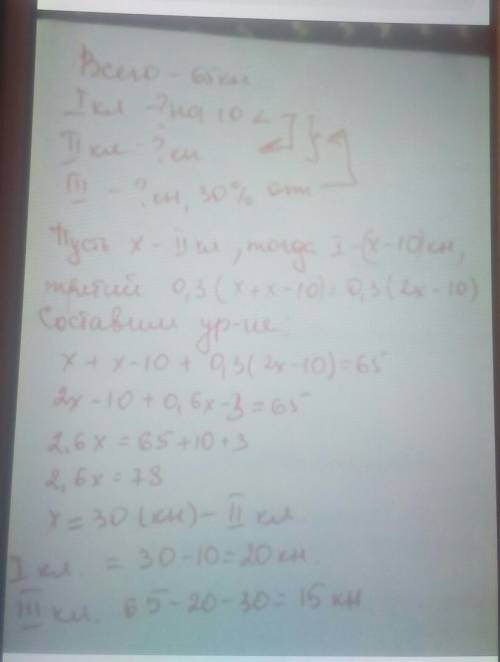 Всего - 65 кн
I кл - ? на 10 <
II кл - ? кн
III - ? кн, 30% от
Пусть x - II кл, тогда I - (x-10) кн,
третий 0,3(x+x-10)=0,3(2x-10)
Составим ур-ие:
x + x-10 + 0,3(2x-10)=65
2x-10+0,6x-3=65
2,6x = 65+10+3
2,6x = 78
x = 30 (кн) - II кл
I кл = 30-10=20 кн
III кл. 65-20-30=15 кн